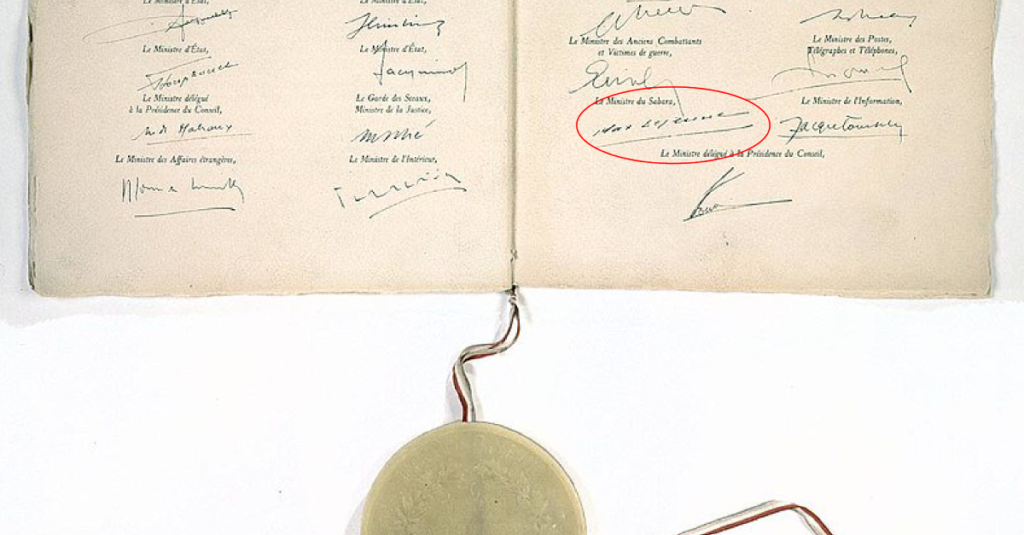 Le Ministre d'État,
Le Ministre d'État,
Le Ministre délégué
à la Présidence du Conseil,
Malraux
Le Ministre des Affaires étrangères,
Le Ministre d'État,
Le Ministre d'État,
Jacquinot
Le Garde des Sceaux,
Ministre de la Justice,
Le Ministre de l'Intérieur,
Le Ministre des Anciens Combattants
et Victimes de guerre,
Le Ministre du Sahara,
Max Lejeune
Le Ministre des Postes,
Télégraphes et Téléphones,
Le Ministre de l'Information,
Jacques Soustelle
Le Ministre délégué à la Présidence du Conseil,